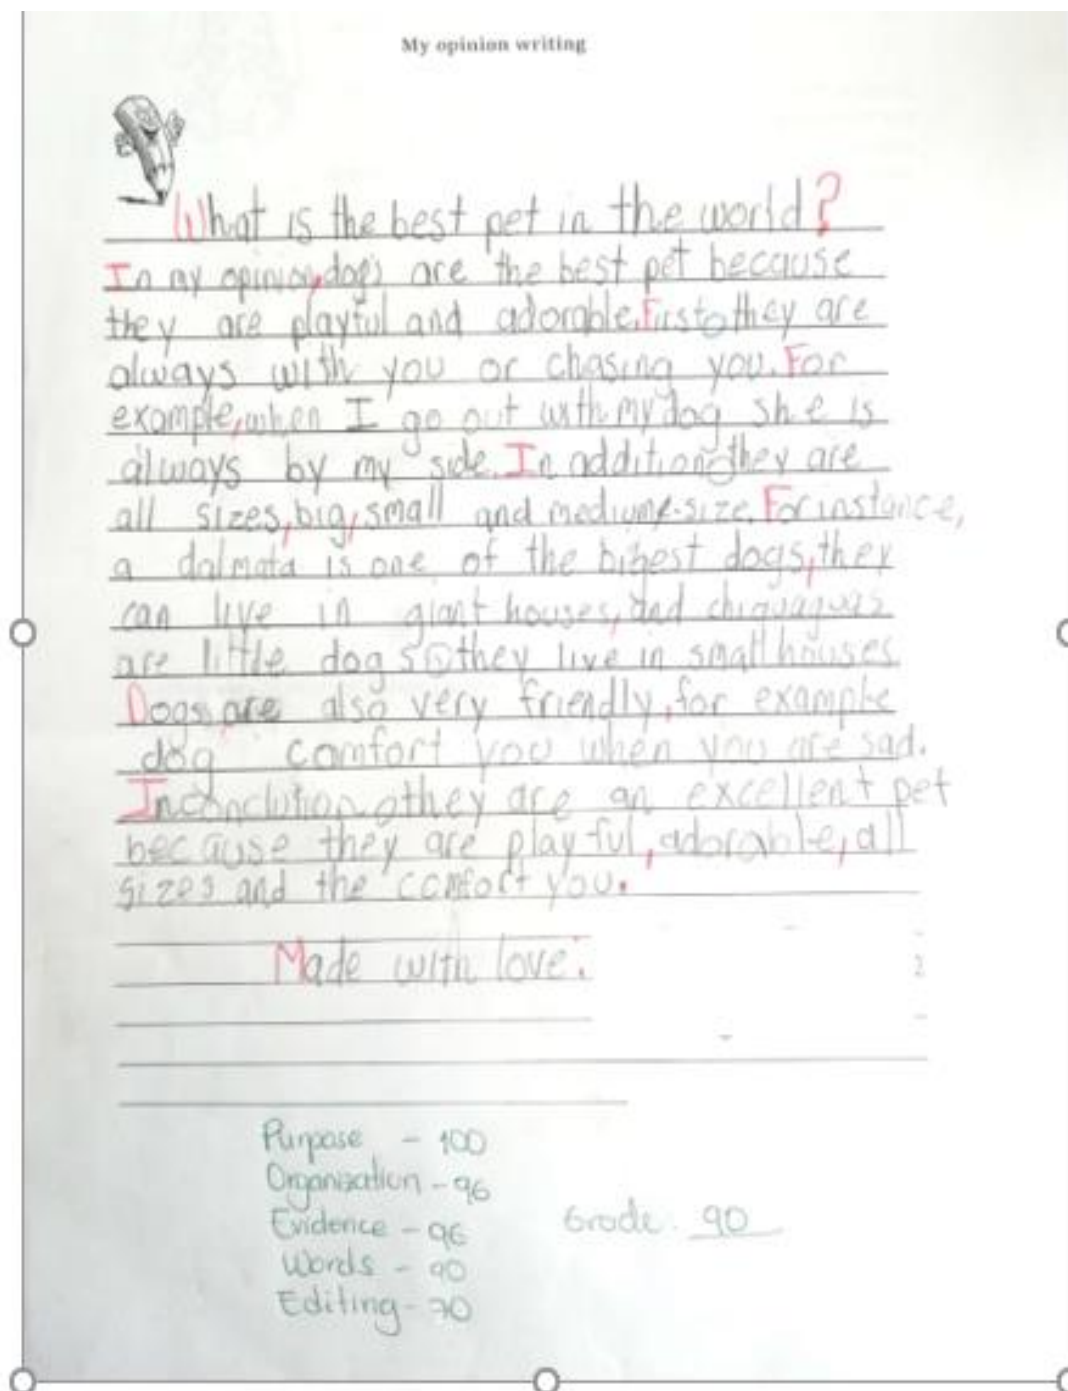 My opinion writing
What is the best pet in the world?
In my opinion, dogs are the best pet because
they are playful and adorable. First, they are
always with you or chasing you. For
example, when I go out with my dog she is
always by my side. In addition, they are
all sizes, big, small and medium-size. For instance,
a dalmata is one of the bigest dogs, they
can live in giant houses, and chiguaguas
are little dogs, they live in small houses
Dogs are also very friendly, for example
dog comfort you when you are sad.
In conclution, they are an excellent pet
because they are playful, adorable, all
sizes and the comfort you.
Made with love:
Purpose - 100
Organization - 96
Evidence - 96
Words - 90
Editing - 70
Grade: 90